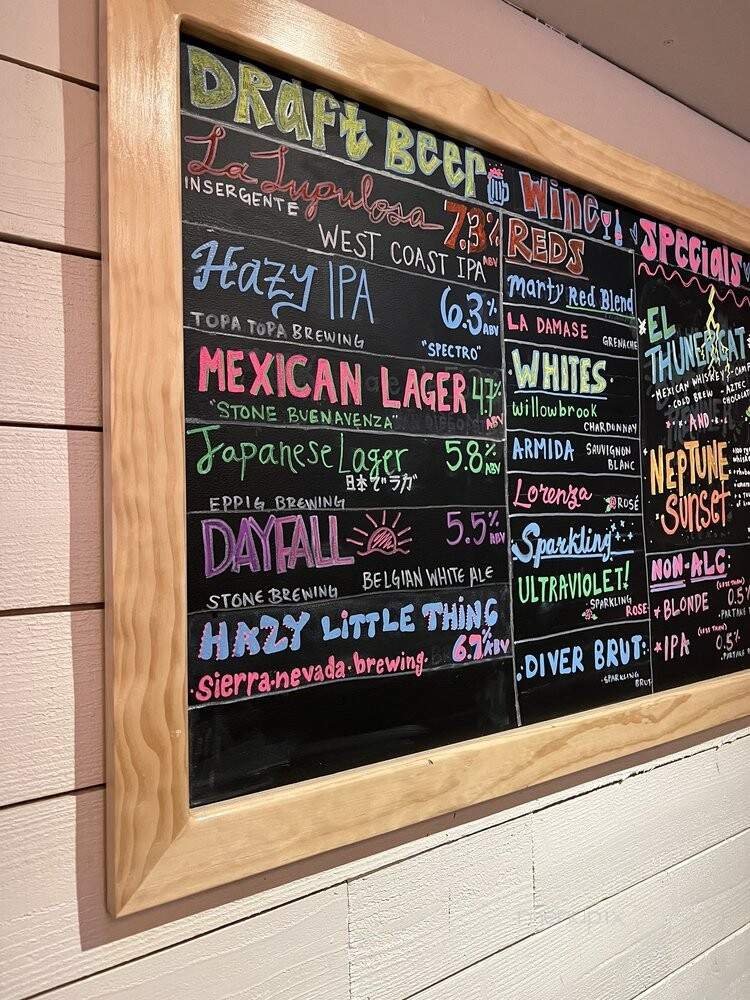 Draft Beer
La Lupulosa
INSERGENTE
7.3% ABV
WEST COAST IPA
Hazy IPA
6.3% ABV
TOPA TOPA BREWING
"SPECTRO"
MEXICAN LAGER 4.7% ABV
"STONE BUENAVENZA"
Japanese Lager 5.8% ABV
EPPIG BREWING
DAYFALL 5.5% ABV
BELGIAN WHITE ALE
STONE BREWING
HAZY LITTLE THING
6.7% ABV
sierra·nevada·brewing·
Wine
REDS
Marty Red Blend
LA DAMASE
GRENACHE
WHITES
willowbrook
CHARDONNAY
ARMIDA SAUVIGNON BLANC
Lorenza ROSÉ
Sparkling
ULTRAVIOLET!
SPARKLING
ROSE
·DIVER BRUT·
·SPARKLING BRUT·
Specials
EL
THUNDERCAT
-MEXICAN WHISKEY
-COLD BREW -AZTEC
CHOCOLATE
AND
NEPTUNE
SUNSET
NON-ALC:
(LESS THAN)
*BLONDE 0.5%
·PARTAKE
(LESS THAN)
*IPA 0.5%
·PARTAKE